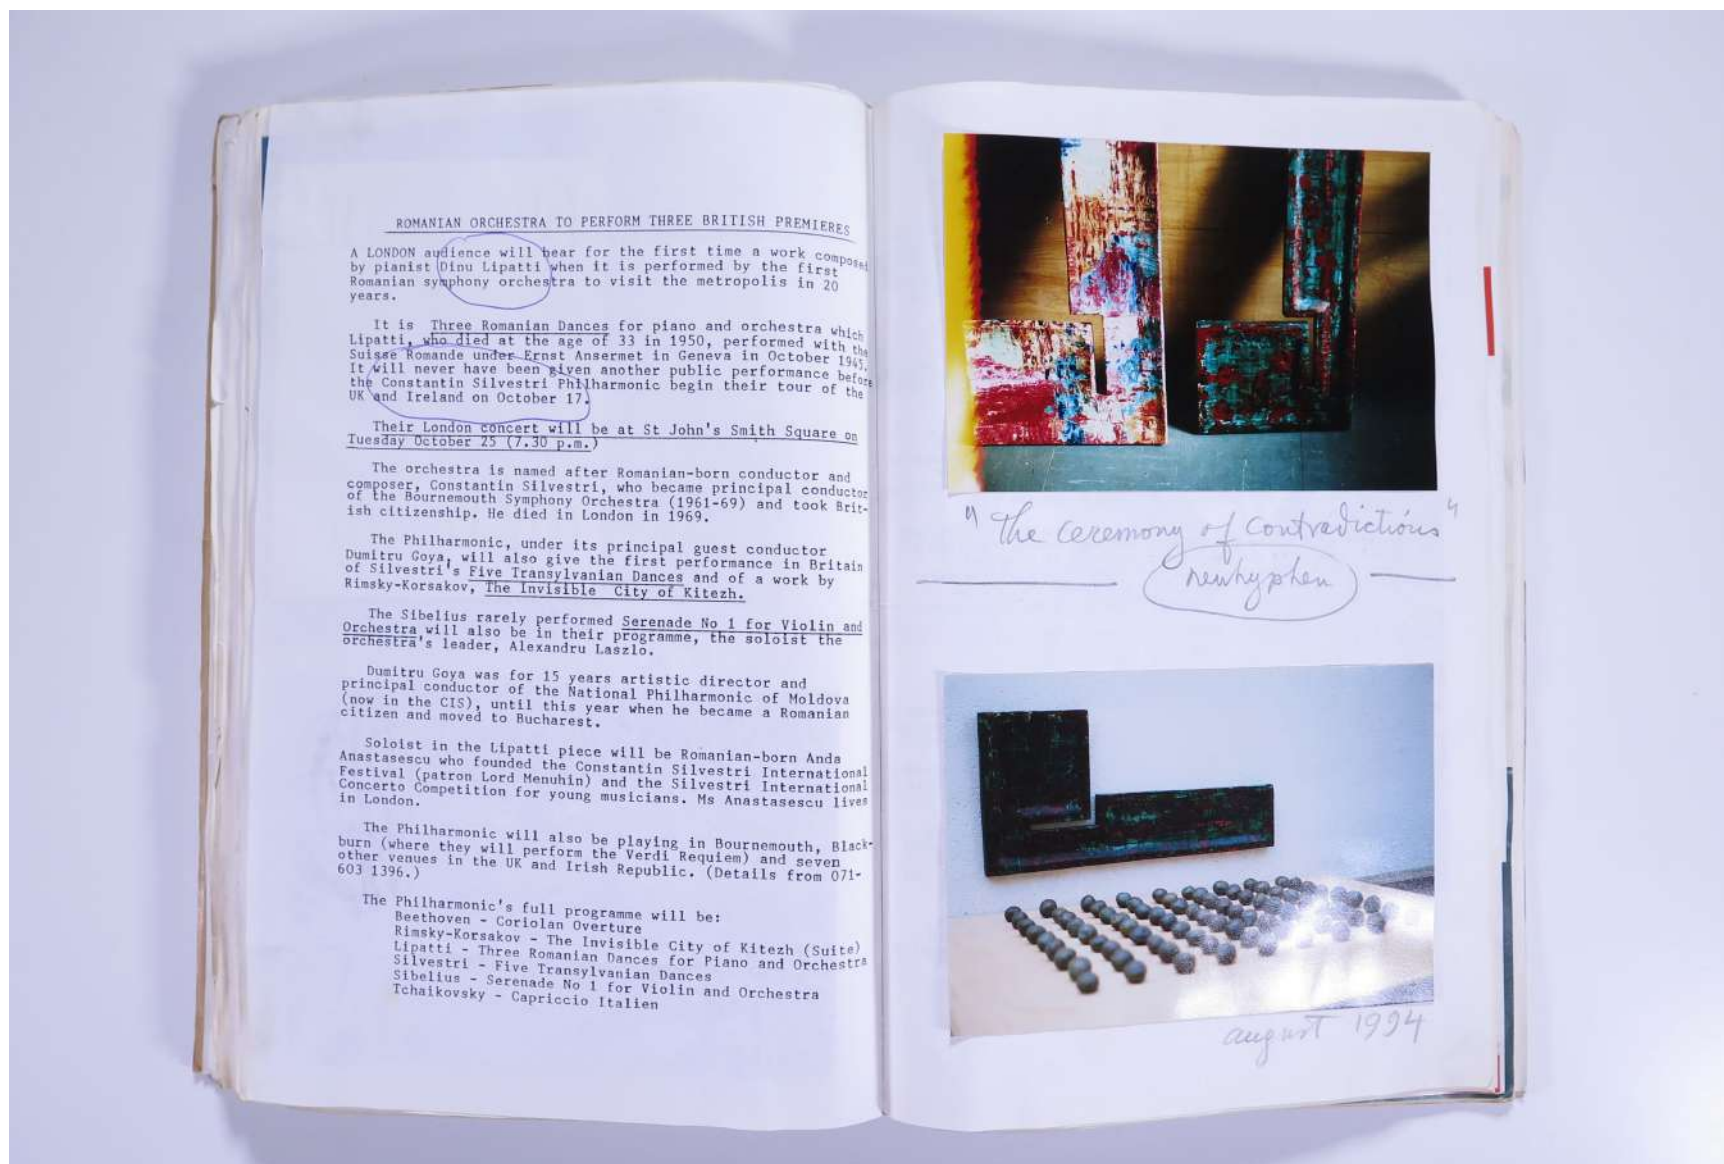 ROMANIAN ORCHESTRA TO PERFORM THREE BRITISH PREMIERES
A LONDON audience will hear for the first time a work composed
by pianist Dinu Lipatti when it is performed by the first
Romanian symphony orchestra to visit the metropolis in 20
years.
It is Three Romanian Dances for piano and orchestra which
Lipatti, who died at the age of 33 in 1950, performed with the
Suisse Romande under Ernst Ansermet in Geneva in October 1945.
It will never have been given another public performance before
the Constantin Silvestri Philharmonic begin their tour of the
UK and Ireland on October 17.
Their London concert will be at St John's Smith Square on
Tuesday October 25 (7.30 p.m.)
The orchestra is named after Romanian-born conductor and
composer, Constantin Silvestri, who became principal conductor
of the Bournemouth Symphony Orchestra (1961-69) and took Brit-
ish citizenship. He died in London in 1969.
The Philharmonic, under its principal guest conductor
Dumitru Goya, will also give the first performance in Britain
of Silvestri's Five Transylvanian Dances and of a work by
Rimsky-Korsakov, The Invisible City of Kitezh.
The Sibelius rarely performed Serenade No 1 for Violin and
Orchestra will also be in their programme, the soloist the
orchestra's leader, Alexandru Laszlo.
Dumitru Goya was for 15 years artistic director and
principal conductor of the National Philharmonic of Moldova
(now in the CIS), until this year when he became a Romanian
citizen and moved to Bucharest.
Soloist in the Lipatti piece will be Romanian-born Anda
Anastasescu who founded the Constantin Silvestri International
Festival (patron Lord Menuhin) and the Silvestri International
Concerto Competition for young musicians. Ms Anastasescu lives
in London.
The Philharmonic will also be playing in Bournemouth, Black-
burn (where they will perform the Verdi Requiem) and seven
other venues in the UK and Irish Republic. (Details from 071-
603 1396.)
The Philharmonic's full programme will be:
Beethoven - Coriolan Overture
Rimsky-Korsakov - The Invisible City of Kitezh (Suite)
Lipatti - Three Romanian Dances for Piano and Orchestra
Silvestri - Five Transylvanian Dances
Sibelius - Serenade No 1 for Violin and Orchestra
Tchaikovsky - Capriccio Italien
"The ceremony of contradictions"
newhyphen
august 1994